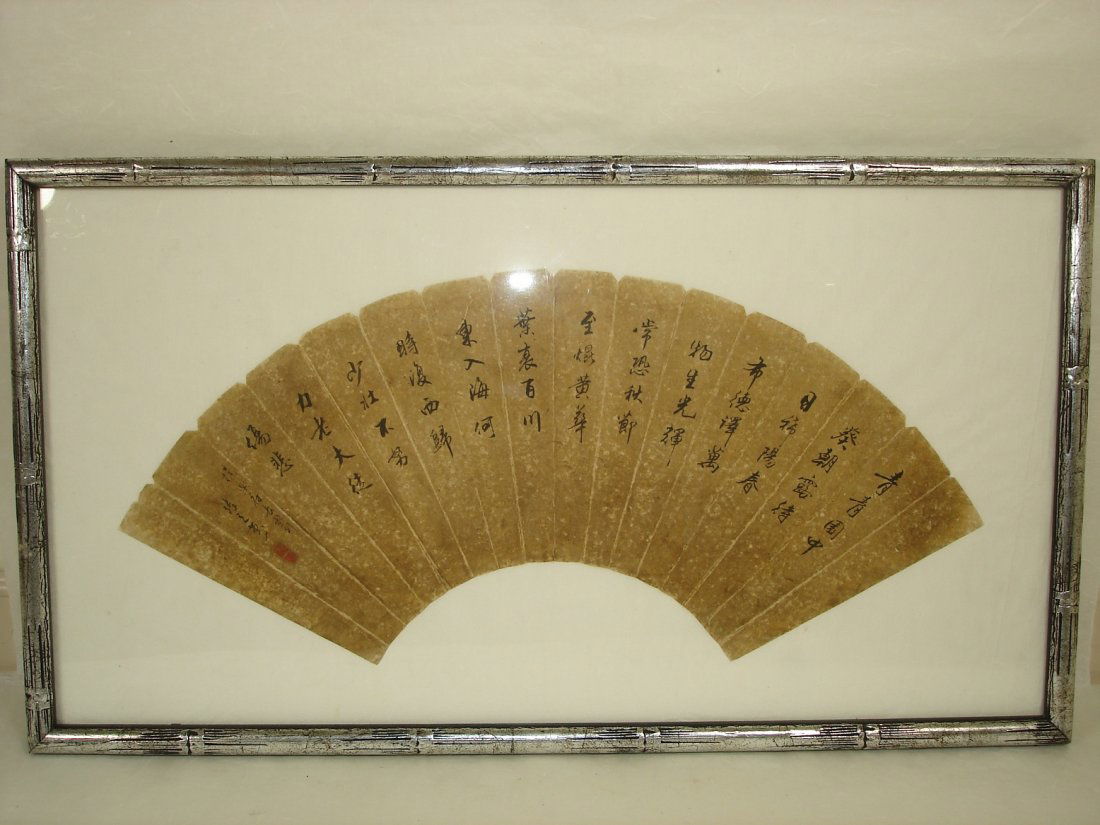 青青園中
葵朝露待
日晞陽春
布德澤萬
物生光輝
常恐秋節
至焜黃華
葉衰百川
東入海何
時復西歸
少壯不努
力老大徒
傷悲